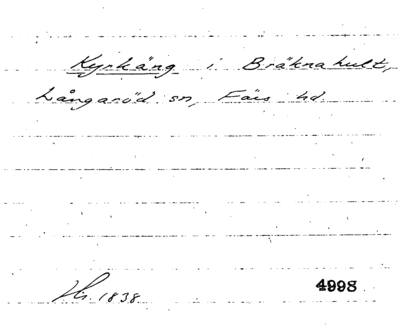 Kyrkäng i Bräknahult,
Långaröd sn, Färs hd.
Hs. 1838
4998